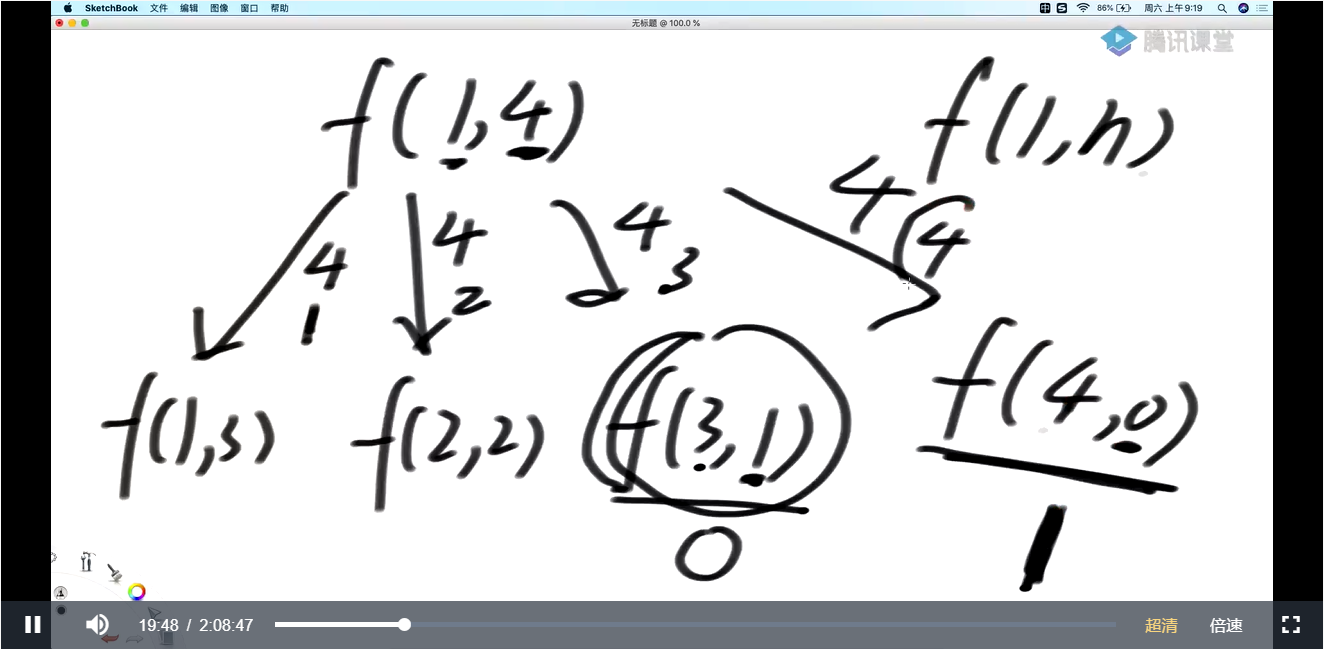 SketchBook 文件 编辑 图像 窗口 帮助 86% 周六上午9:19
无标题 @ 100.0 %
腾讯课堂
f(1,4) f(1,n)
4 4 4 4
1 2 3 4
f(1,3) f(2,2) f(3,1) f(4,0)
0 1
19:48 / 2:08:47 超清 倍速